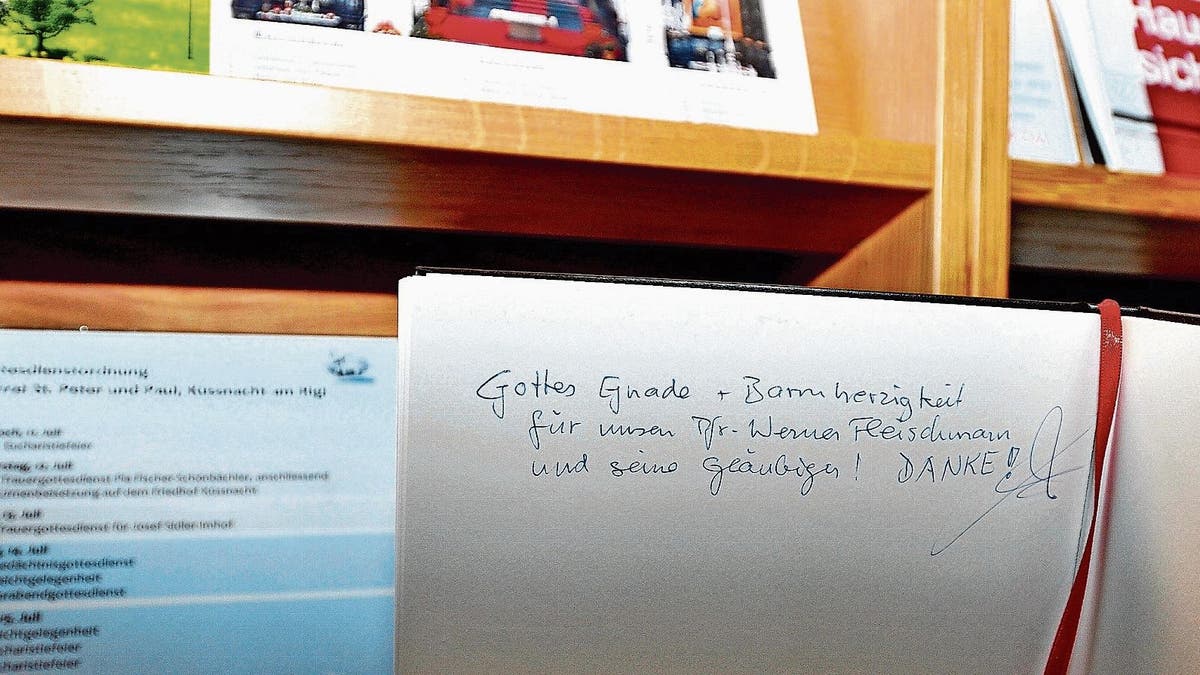 Haus
sich
tesdienstordnung
rrei St. Peter und Paul, Küssnacht am Rigi
och, 11. Juli
Eucharistiefeier
rstag, 12. Juli
Trauergottesdienst Pia Fischer-Schönbächler, anschliessend
Urnenbeisetzung auf dem Friedhof Küssnacht
13. Juli
Trauergottesdienst für Josef Sidler-Imhof
, 14. Juli
edächtnisgottesdienst
eichtgelegenheit
orabendgottesdienst
15. Juli
ichtgelegenheit
charistiefeier
charistiefeier
Gottes Gnade + Barmherzigkeit
für unsen Pfr. Werner Fleischmann
und seine Gläubiger! DANKE!